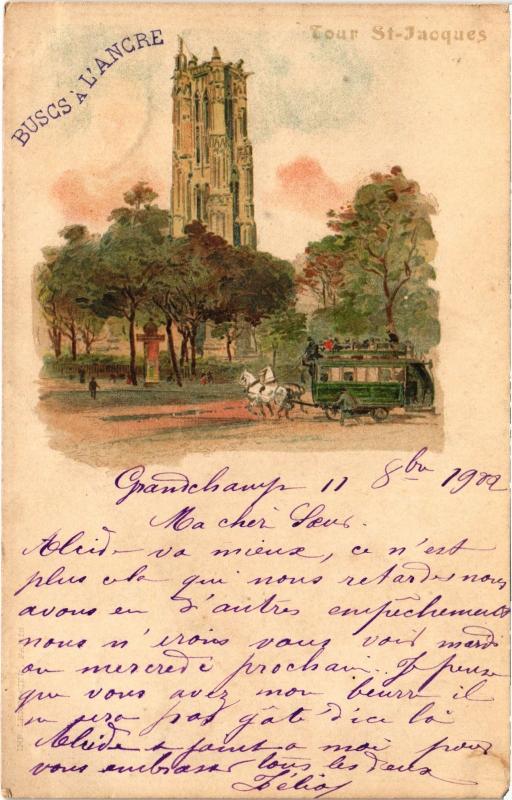 Tour St-Jacques
BUSCS À L'ANCRE
Grandchamp 11 8bre 1902
Ma cher Sœur.
Alcide va mieux, ce n'est
plus cela qui nous retarde, nous
avons eu d'autres empêchements
nous n'irons vous voir mardi
ou mercredi prochain. Je pense
que vous avez mon beurre il
ne sera pas gâté d'ici là
Alcide se joint a moi pour
vous embrasser tous les deux